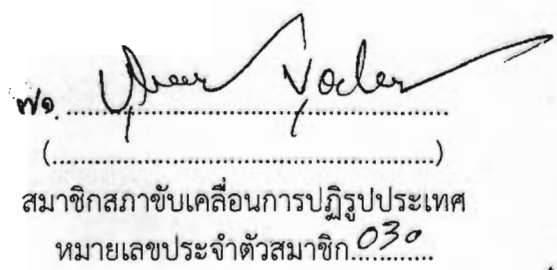 พอ. ........................................................
(........................................................)
สมาชิกสภาขับเคลื่อนการปฏิรูปประเทศ
หมายเลขประจำตัวสมาชิก 030